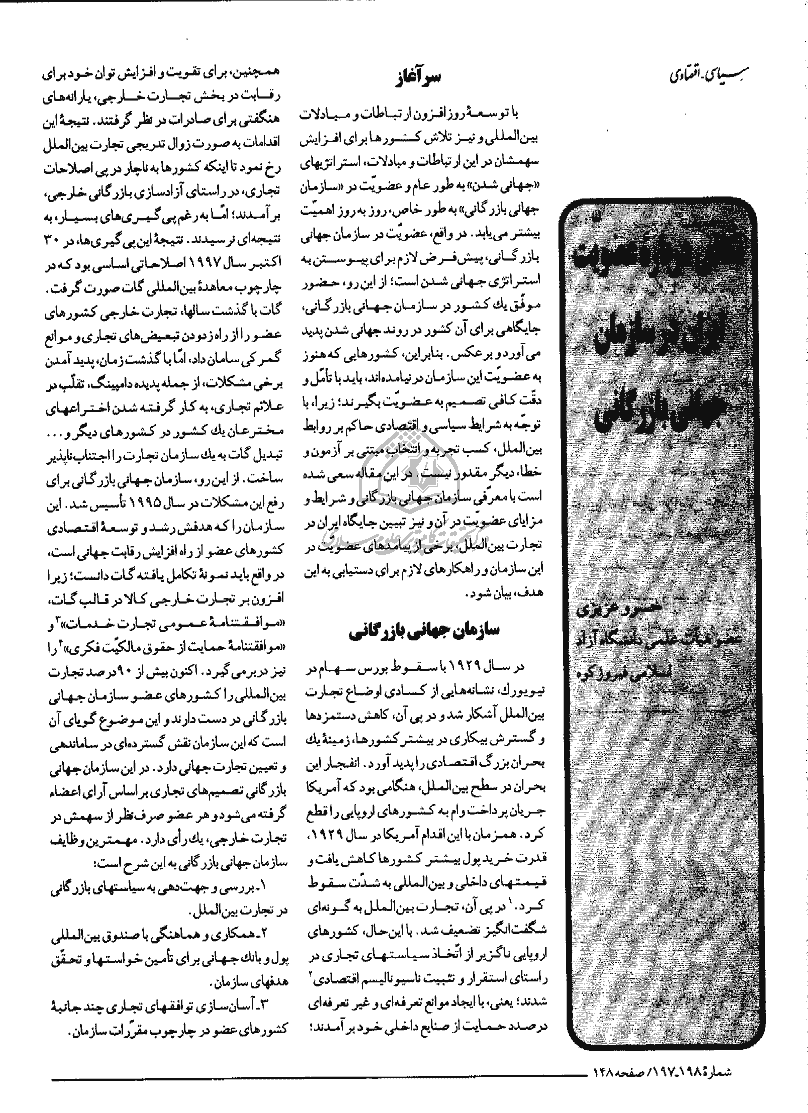 سیاسی-اقتصادی
درباره عضویت
ایران در سازمان
جهانی بازرگانی
خسرو عزیزی
عضو هیأت علمی دانشگاه آزاد
اسلامی فیروزکوه
سرآغاز
با توسعهٔ روزافزون ارتباطات و مبادلات
بین‌المللی و نیز تلاش کشورها برای افزایش
سهمشان در این ارتباطات و مبادلات، استراتژیهای
«جهانی شدن» به طور عام و عضویّت در «سازمان
جهانی بازرگانی» به طور خاص، روز به روز اهمیّت
بیشتر می‌یابد. در واقع، عضویّت در سازمان جهانی
بازرگانی، پیش‌فرض لازم برای پیوستن به
استراتژی جهانی شدن است؛ از این رو، حضور
موفّق یك کشور در سازمان جهانی بازرگانی،
جایگاهی برای آن کشور در روند جهانی شدن پدید
می‌آورد و برعکس. بنابراین، کشورهایی که هنوز
به عضویّت این سازمان در نیامده‌اند، باید با تأمل و
دقّت کافی تصمیم به عضویّت بگیرند؛ زیرا، با
توجّه به شرایط سیاسی و اقتصادی حاکم بر روابط
بین‌الملل، کسب تجربه و انتخاب مبتنی بر آزمون و
خطا، دیگر مقدور نیست. در این مقاله سعی شده
است با معرفی سازمان جهانی بازرگانی و شرایط و
مزایای عضویّت در آن و نیز تبیین جایگاه ایران در
تجارت بین‌الملل، برخی از پیامدهای عضویّت در
این سازمان و راهکارهای لازم برای دستیابی به این
هدف، بیان شود.
سازمان جهانی بازرگانی
در سال ۱۹۲۹ با سقوط بورس سهام در
نیویورك، نشانه‌هایی از کسادی اوضاع تجارت
بین‌الملل آشکار شد و در پی آن، کاهش دستمزدها
و گسترش بیکاری در بیشتر کشورها، زمینهٔ یك
بحران بزرگ اقتصادی را پدید آورد. انفجار این
بحران در سطح بین‌الملل، هنگامی بود که آمریکا
جریان پرداخت وام به کشورهای اروپایی را قطع
کرد. همزمان با این اقدام آمریکا در سال ۱۹۲۹،
قدرت خرید پول بیشتر کشورها کاهش یافت و
قیمتهای داخلی و بین‌المللی به شدّت سقوط
کرد.۱ در پی آن، تجارت بین‌الملل به گونه‌ای
شگفت‌انگیز تضعیف شد. با این حال، کشورهای
اروپایی ناگزیر از اتّخاذ سیاستهای تجاری در
راستای استقرار و تثبیت ناسیونالیسم اقتصادی۲
شدند؛ یعنی، با ایجاد موانع تعرفه‌ای و غیر تعرفه‌ای
درصدد حمایت از صنایع داخلی خود برآمدند؛
همچنین، برای تقویت و افزایش توان خود برای
رقابت در بخش تجارت خارجی، یارانه‌های
هنگفتی برای صادرات در نظر گرفتند. نتیجهٔ این
اقدامات به صورت زوال تدریجی تجارت بین‌الملل
رخ نمود تا اینکه کشورها به ناچار در پی اصلاحات
تجاری، در راستای آزادسازی بازرگانی خارجی،
برآمدند؛ امّا به رغم پی‌گیری‌های بسیار، به
نتیجه‌ای نرسیدند. نتیجهٔ این پی‌گیری‌ها، در ۳۰
اکتبر سال ۱۹۹۷ اصلاحاتی اساسی بود که در
چارچوب معاهدهٔ بین‌المللی گات صورت گرفت.
گات با گذشت سالها، تجارت خارجی کشورهای
عضو را از راه زدودن تبعیض‌های تجاری و موانع
گمرکی سامان داد، امّا با گذشت زمان، پدید آمدن
برخی مشکلات، از جمله پدیده دامپینگ، تقلّب در
علائم تجاری، به کار گرفته شدن اختراعهای
مخترعان یك کشور در کشورهای دیگر و...
تبدیل گات به یك سازمان تجارت را اجتناب‌ناپذیر
ساخت. از این رو، سازمان جهانی بازرگانی برای
رفع این مشکلات در سال ۱۹۹۵ تأسیس شد. این
سازمان را که هدفش رشد و توسعهٔ اقتصادی
کشورهای عضو از راه افزایش رقابت جهانی است،
در واقع باید نمونهٔ تکامل یافته گات دانست؛ زیرا
افزون بر تجارت خارجی کالا در قالب گات،
«موافقتنامهٔ عمومی تجارت خدمات»۳ و
«موافقتنامهٔ حمایت از حقوق مالکیّت فکری»۴ را
نیز در بر می‌گیرد. اکنون بیش از ۹۰ درصد تجارت
بین‌المللی را کشورهای عضو سازمان جهانی
بازرگانی در دست دارند و این موضوع گویای آن
است که این سازمان نقش گسترده‌ای در ساماندهی
و تعیین تجارت جهانی دارد. در این سازمان جهانی
بازرگانی تصمیم‌های تجاری بر اساس آرای اعضاء
گرفته می‌شود و هر عضو صرف‌نظر از سهمش در
تجارت خارجی، یك رأی دارد. مهمترین وظایف
سازمان جهانی بازرگانی به این شرح است:
۱ـ بررسی و جهت‌دهی به سیاستهای بازرگانی
در تجارت بین‌الملل.
۲ـ همکاری و هماهنگی با صندوق بین‌المللی
پول و بانك جهانی برای تأمین خواستها و تحقّق
هدفهای سازمان.
۳ـ آسان‌سازی توافقهای تجاری چند جانبهٔ
کشورهای عضو در چارچوب مقرّرات سازمان.
شمارهٔ ۱۹۸ـ۱۹۷/ صفحه ۱۴۸